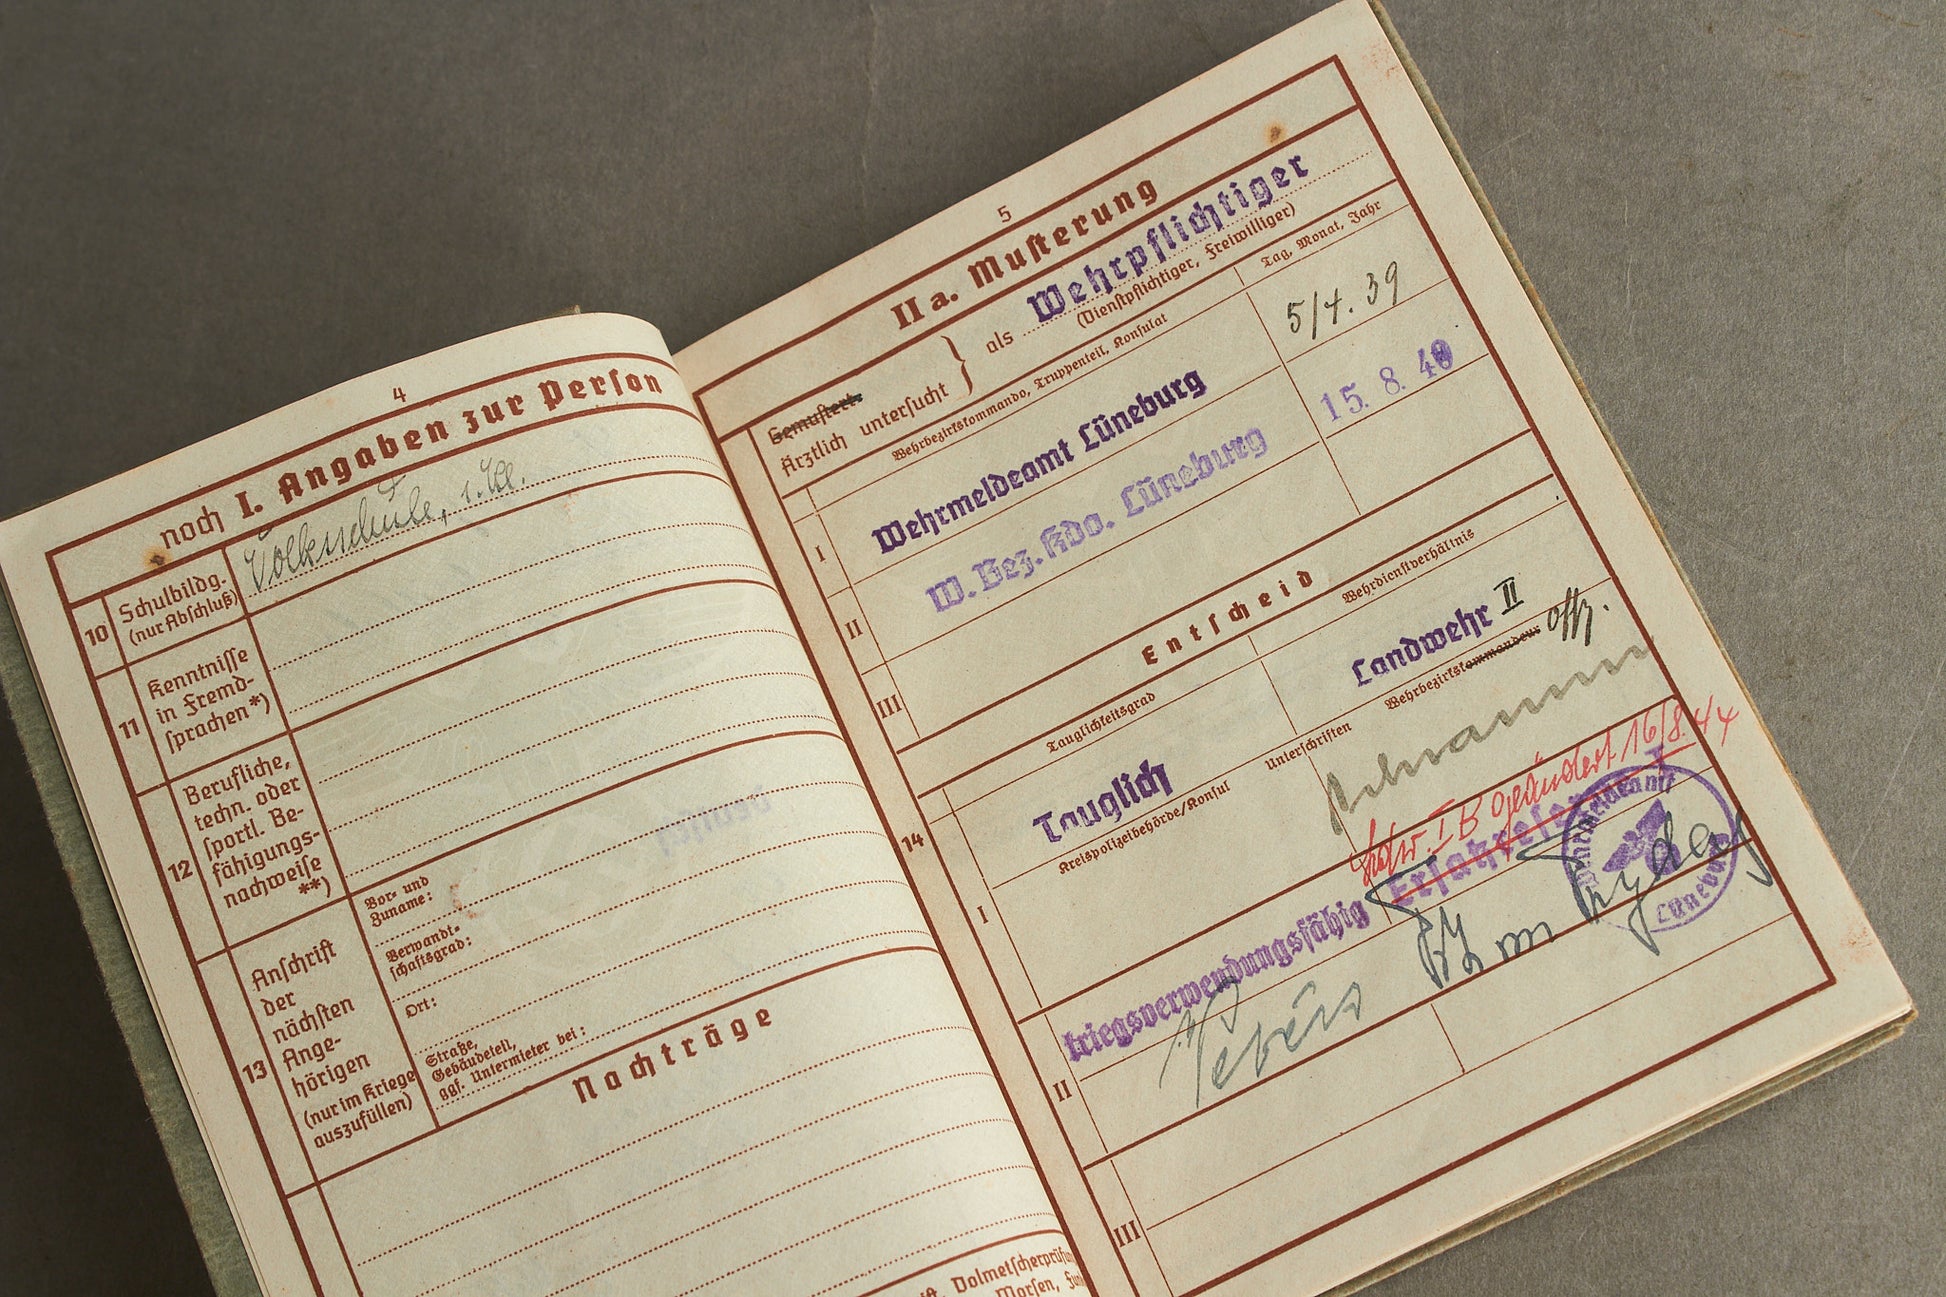 4
noch I. Angaben zur Person
10
Schulbildg.
(nur Abschluß)
Volksschule, 1. Kl.
11
Kenntnisse
in Fremd-
sprachen*)
12
Berufliche,
techn. oder
sportl. Be-
fähigungs-
nachweise
**)
13
Anschrift
der
nächsten
Ange-
hörigen
(nur im Kriege
auszufüllen)
Vor- und
Zuname:
Verwandt-
schaftsgrad:
Ort:
Straße,
Gebäudeteil,
ggf. Untermieter bei:
Nachträge
Dolmetscherprüfun
Morsen,
5
II a. Musterung
Gemustert
Ärztlich untersucht
als
Wehrpflichtiger
(Dienstpflichtiger, Freiwilliger)
Wehrbezirkskommando, Truppenteil, Konsulat
Tag, Monat, Jahr
I
Wehrmeldeamt Lüneburg
5/4. 39
II
W. Bez. Kdo. Lüneburg
15. 8. 40
III
Entscheid
Tauglichkeitsgrad
Wehrdienstverhältnis
14
I
Tauglich
Landwehr II
Kreispolizeibehörde/Konsul
Unterschriften
Wehrbezirkskommandeur
offz.
II
kriegsverwendungsfähig
geändert 16/8. 44
Wehrmeldeamt
Lüneburg
III